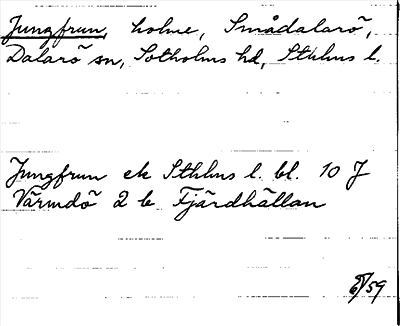 Jungfrun, holme, Smådalarö,
Dalarö sn, Sotholms hd, Sthlms l.
Jungfrun ek Sthlms l. bl. 10 J
Värmdö 2 b Fjärdhällan
/59